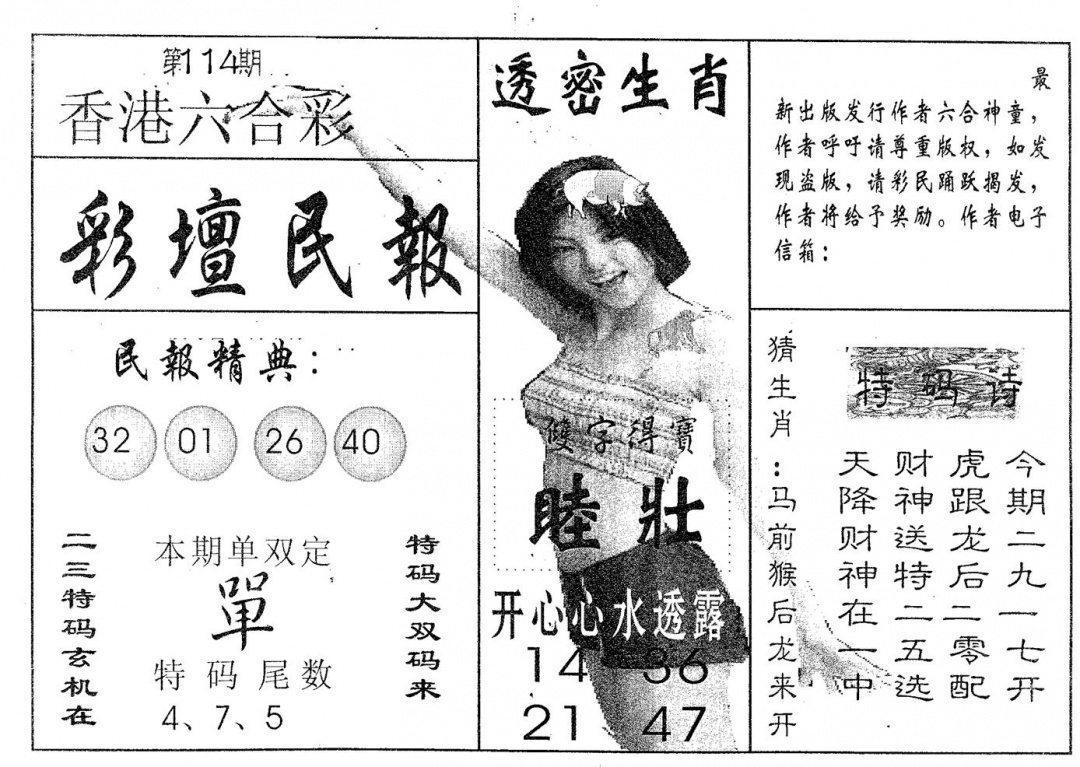 第114期
香港六合彩
彩壇民報
民報精典：
32 01 26 40
二三特码玄机在
本期单双定
單
特码尾数
4、7、5
特码大双码来
透密生肖
雙字得寶
睦壯
开心心水透露
14 36
21 47
最
新出版发行作者六合神童，
作者呼吁请尊重版权，如发
现盗版，请彩民踊跃揭发，
作者将给予奖励。作者电子
信箱：
猜生肖：马前猴后龙来开
特码诗
今期二九一七开
虎跟龙后二零配
财神送特二五选
天降财神在一中